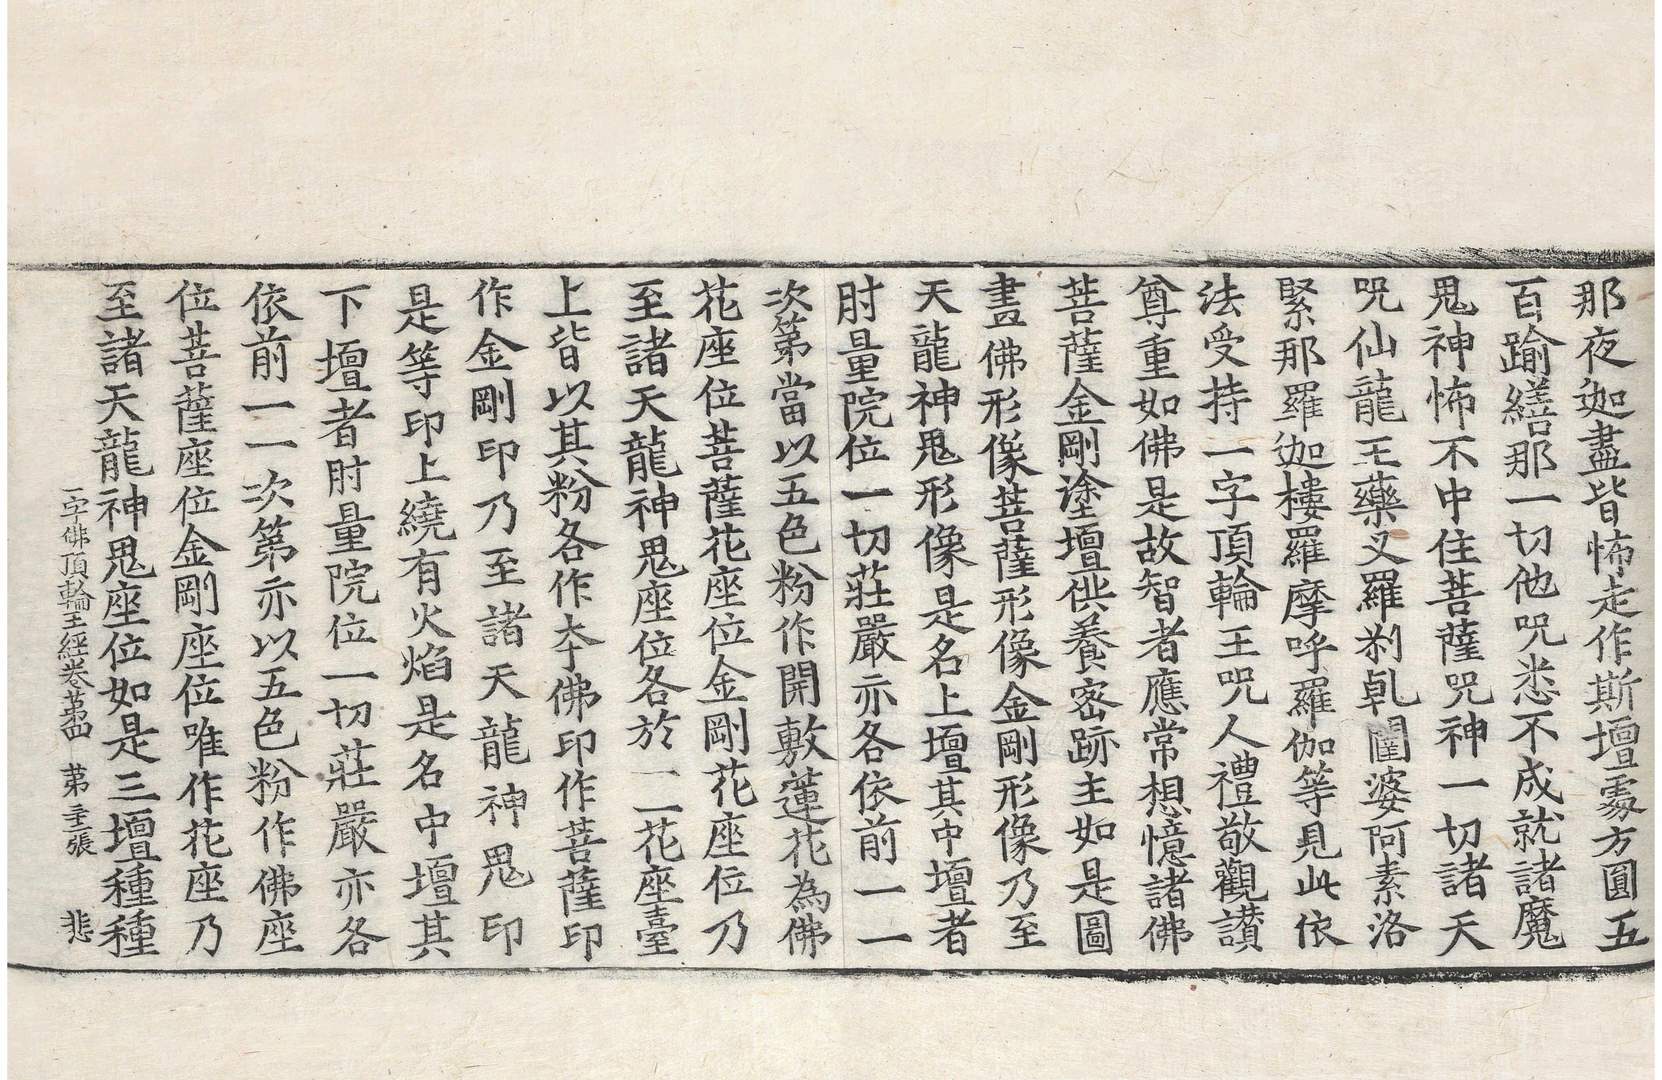 那夜迦盡皆怖走作斯壇處方圓五
百踰繕那一切他呪悉不成就諸魔
鬼神怖不中住菩薩呪神一切諸天
呪仙龍王藥叉羅剎乹闥婆阿素洛
緊那羅迦樓羅摩呼羅伽等見此依
法受持一字頂輪王呪人禮敬觀讃
尊重如佛是故智者應常想憶諸佛
菩薩金剛塗壇供養宻跡主如是圖
畫佛形像菩薩形像金剛形像乃至
天龍神鬼形像是名上壇其中壇者
肘量院位一切莊嚴亦各依前一一
次第當以五色粉作開敷蓮花為佛
花座位菩薩花座位金剛花座位乃
至諸天龍神鬼座位各於一一花座臺
上皆以其粉各作本佛印作菩薩印
作金剛印乃至諸天龍神鬼印
是等印上繞有火焰是名中壇其
下壇者肘量院位一切莊嚴亦各
依前一一次第亦以五色粉作佛座
位菩薩座位金剛座位唯作花座乃
至諸天龍神鬼座位如是三壇種種
一字佛頂輪王經卷第四 第 張 悲